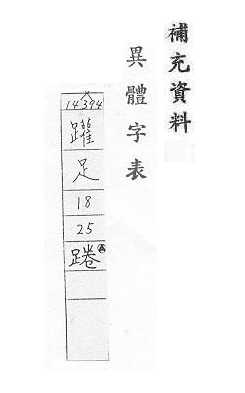 補充資料
異體字表
14394
足
18
25
踡